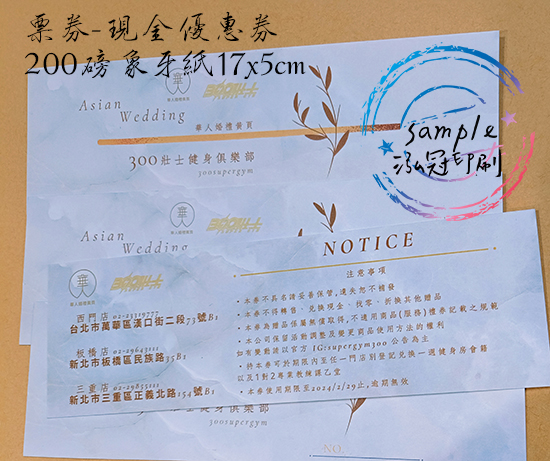 票券-現金優惠券
200磅象牙紙17x5cm
華人婚禮黃頁
Asian
Wedding
華人婚禮黃頁
300壯士健身俱樂部
300supergym
sample
泓冠印刷
Asian
Wedding
華人婚禮黃頁
西門店 02-23319777
台北市萬華區漢口街二段73號B1
板橋店 02-29643111
新北市板橋區民族路35B1
三重店 02-29855111
新北市三重區正義北路154號B1
NOTICE
注意事項
•本券不具名請妥善保管,遺失恕不補發
•本券不得轉售、兌換現金、找零、折換其他贈品
•本券為贈品係屬無償取得,不適用商品(服務)禮券記載之規範
•本公司保留活動調整及變更商品使用方法的權利
如有變動請以官方 IG:supergym300 公告為主
•持本券可於期限內至任一門店別登記兌換一週健身房會籍
以及1對2專業教練課乙堂
•本券使用期限至2024/2/29止,逾期無效
士健身俱樂部
300supergym
NO.